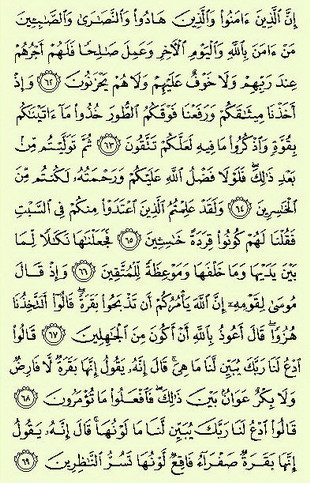 إِنَّ الَّذِينَ ءَامَنُوا وَالَّذِينَ هَادُوا وَالنَّصَٰرَىٰ وَالصَّٰبِـِٔينَ
مَنْ ءَامَنَ بِاللَّهِ وَالْيَوْمِ الْءَاخِرِ وَعَمِلَ صَٰلِحًا فَلَهُمْ أَجْرُهُمْ
عِندَ رَبِّهِمْ وَلَا خَوْفٌ عَلَيْهِمْ وَلَا هُمْ يَحْزَنُونَ ٦٢ وَإِذْ
أَخَذْنَا مِيثَٰقَكُمْ وَرَفَعْنَا فَوْقَكُمُ الطُّورَ خُذُوا مَا ءَاتَيْنَٰكُم
بِقُوَّةٍ وَاذْكُرُوا مَا فِيهِ لَعَلَّكُمْ تَتَّقُونَ ٦٣ ثُمَّ تَوَلَّيْتُم مِّنۢ
بَعْدِ ذَٰلِكَ ۖ فَلَوْلَا فَضْلُ اللَّهِ عَلَيْكُمْ وَرَحْمَتُهُ لَكُنتُم مِّنَ
الْخَٰسِرِينَ ٦٤ وَلَقَدْ عَلِمْتُمُ الَّذِينَ اعْتَدَوْا مِنكُمْ فِي السَّبْتِ
فَقُلْنَا لَهُمْ كُونُوا قِرَدَةً خَٰسِـِٔينَ ٦٥ فَجَعَلْنَٰهَا نَكَٰلًا لِّمَا
بَيْنَ يَدَيْهَا وَمَا خَلْفَهَا وَمَوْعِظَةً لِّلْمُتَّقِينَ ٦٦ وَإِذْ قَالَ
مُوسَىٰ لِقَوْمِهِ إِنَّ اللَّهَ يَأْمُرُكُمْ أَن تَذْبَحُوا بَقَرَةً ۖ قَالُوا أَتَتَّخِذُنَا
هُزُوًا ۖ قَالَ أَعُوذُ بِاللَّهِ أَنْ أَكُونَ مِنَ الْجَٰهِلِينَ ٦٧ قَالُوا
ادْعُ لَنَا رَبَّكَ يُبَيِّن لَّنَا مَا هِيَ ۚ قَالَ إِنَّهُ يَقُولُ إِنَّهَا بَقَرَةٌ لَّا فَارِضٌ
وَلَا بِكْرٌ عَوَانٌۢ بَيْنَ ذَٰلِكَ ۖ فَافْعَلُوا مَا تُؤْمَرُونَ ٦٨
قَالُوا ادْعُ لَنَا رَبَّكَ يُبَيِّن لَّنَا مَا لَوْنُهَا ۚ قَالَ إِنَّهُ يَقُولُ
إِنَّهَا بَقَرَةٌ صَفْرَاءُ فَاقِعٌ لَّوْنُهَا تَسُرُّ النَّٰظِرِينَ ٦٩